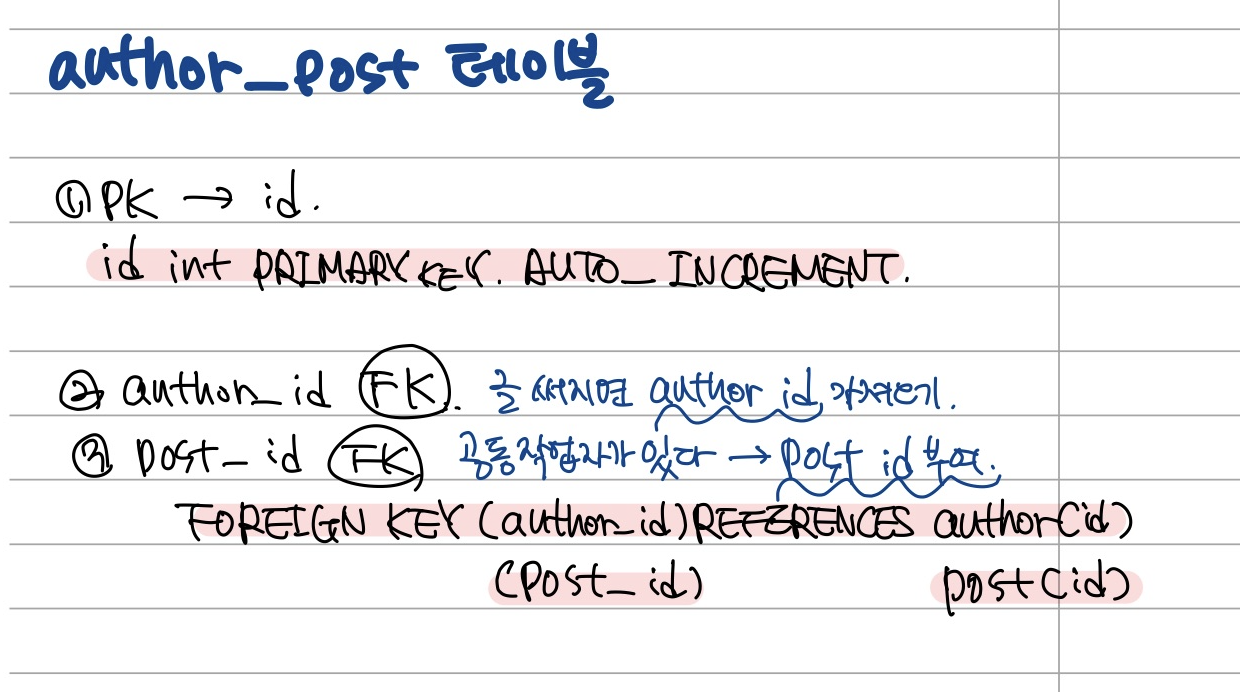 author_post 테이블
① PK → id.
id int PRIMARY KEY. AUTO_INCREMENT.
② author_id FK. 글 써지면 author id 가져오기.
③ post_id FK 공동작업자가 있다 → post id 부여.
FOREIGN KEY (author_id) REFERENCES author(id)
(post_id) post(id)